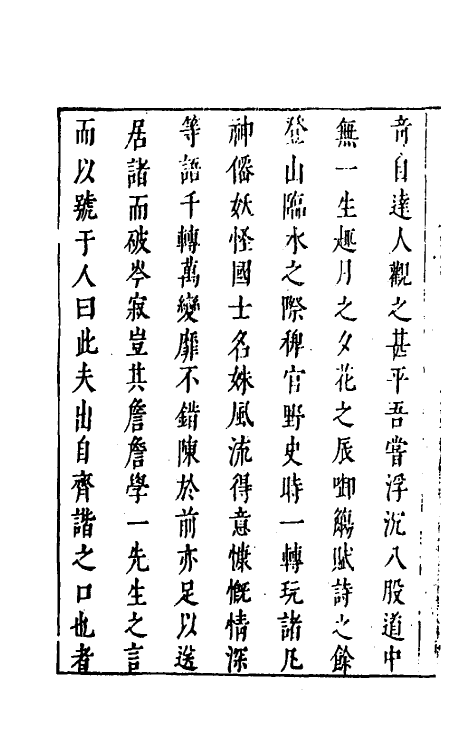 奇自達人觀之甚平吾嘗浮沉八股道中
無一生趣月之夕花之辰啣觴賦詩之餘
登山臨水之際稗官野史時一轉玩諸凡
神僊妖怪國士名姝風流得意慷慨情深
等語千轉萬變靡不錯陳於前亦足以送
居諸而破岑寂豈其詹詹學一先生之言
而以號于人曰此夫出自齊諧之口也者